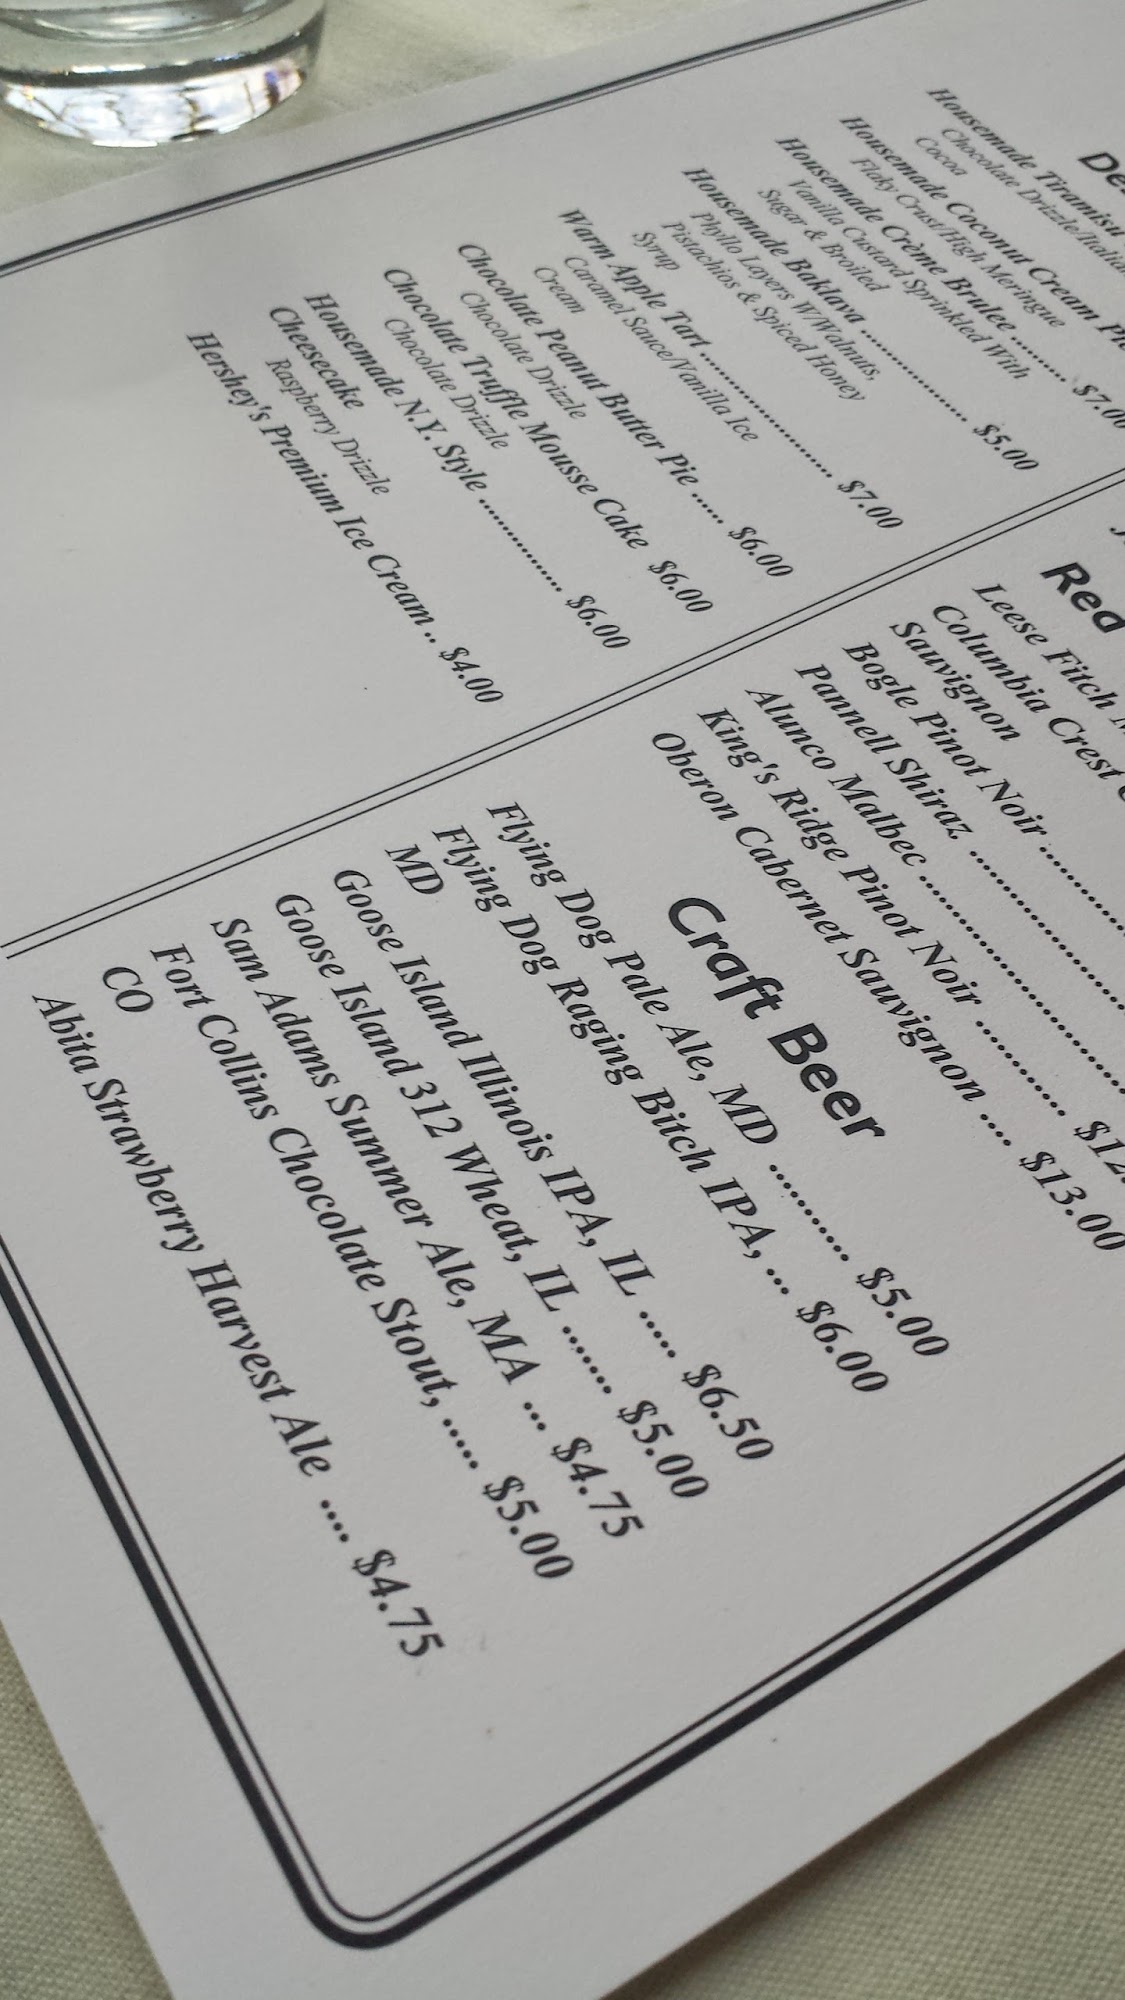 Housemade Tiramisu
Chocolate Drizzle/Italian
Cocoa
Housemade Coconut Cream Pie
Flaky Crust/High Meringue
Housemade Crème Brulee ........ $7.00
Vanilla Custard Sprinkled With
Sugar & Broiled
Housemade Baklava ................ $5.00
Phyllo Layers W/Walnuts,
Pistachios & Spiced Honey
Syrup
Warm Apple Tart ..................... $7.00
Caramel Sauce/Vanilla Ice
Cream
Chocolate Peanut Butter Pie ...... $6.00
Chocolate Drizzle
Chocolate Truffle Mousse Cake $6.00
Chocolate Drizzle
Housemade N.Y. Style ............... $6.00
Cheesecake
Raspberry Drizzle
Hershey's Premium Ice Cream .. $4.00
Red
Leese Fitch
Columbia Crest
Sauvignon
Bogle Pinot Noir
Pannell Shiraz
Alunco Malbec
King's Ridge Pinot Noir
Oberon Cabernet Sauvignon .... $13.00
Craft Beer
Flying Dog Pale Ale, MD ........... $5.00
Flying Dog Raging Bitch IPA, ... $6.00
MD
Goose Island Illinois IPA, IL ..... $6.50
Goose Island 312 Wheat, IL ....... $5.00
Sam Adams Summer Ale, MA ... $4.75
Fort Collins Chocolate Stout, ...... $5.00
CO
Abita Strawberry Harvest Ale .... $4.75